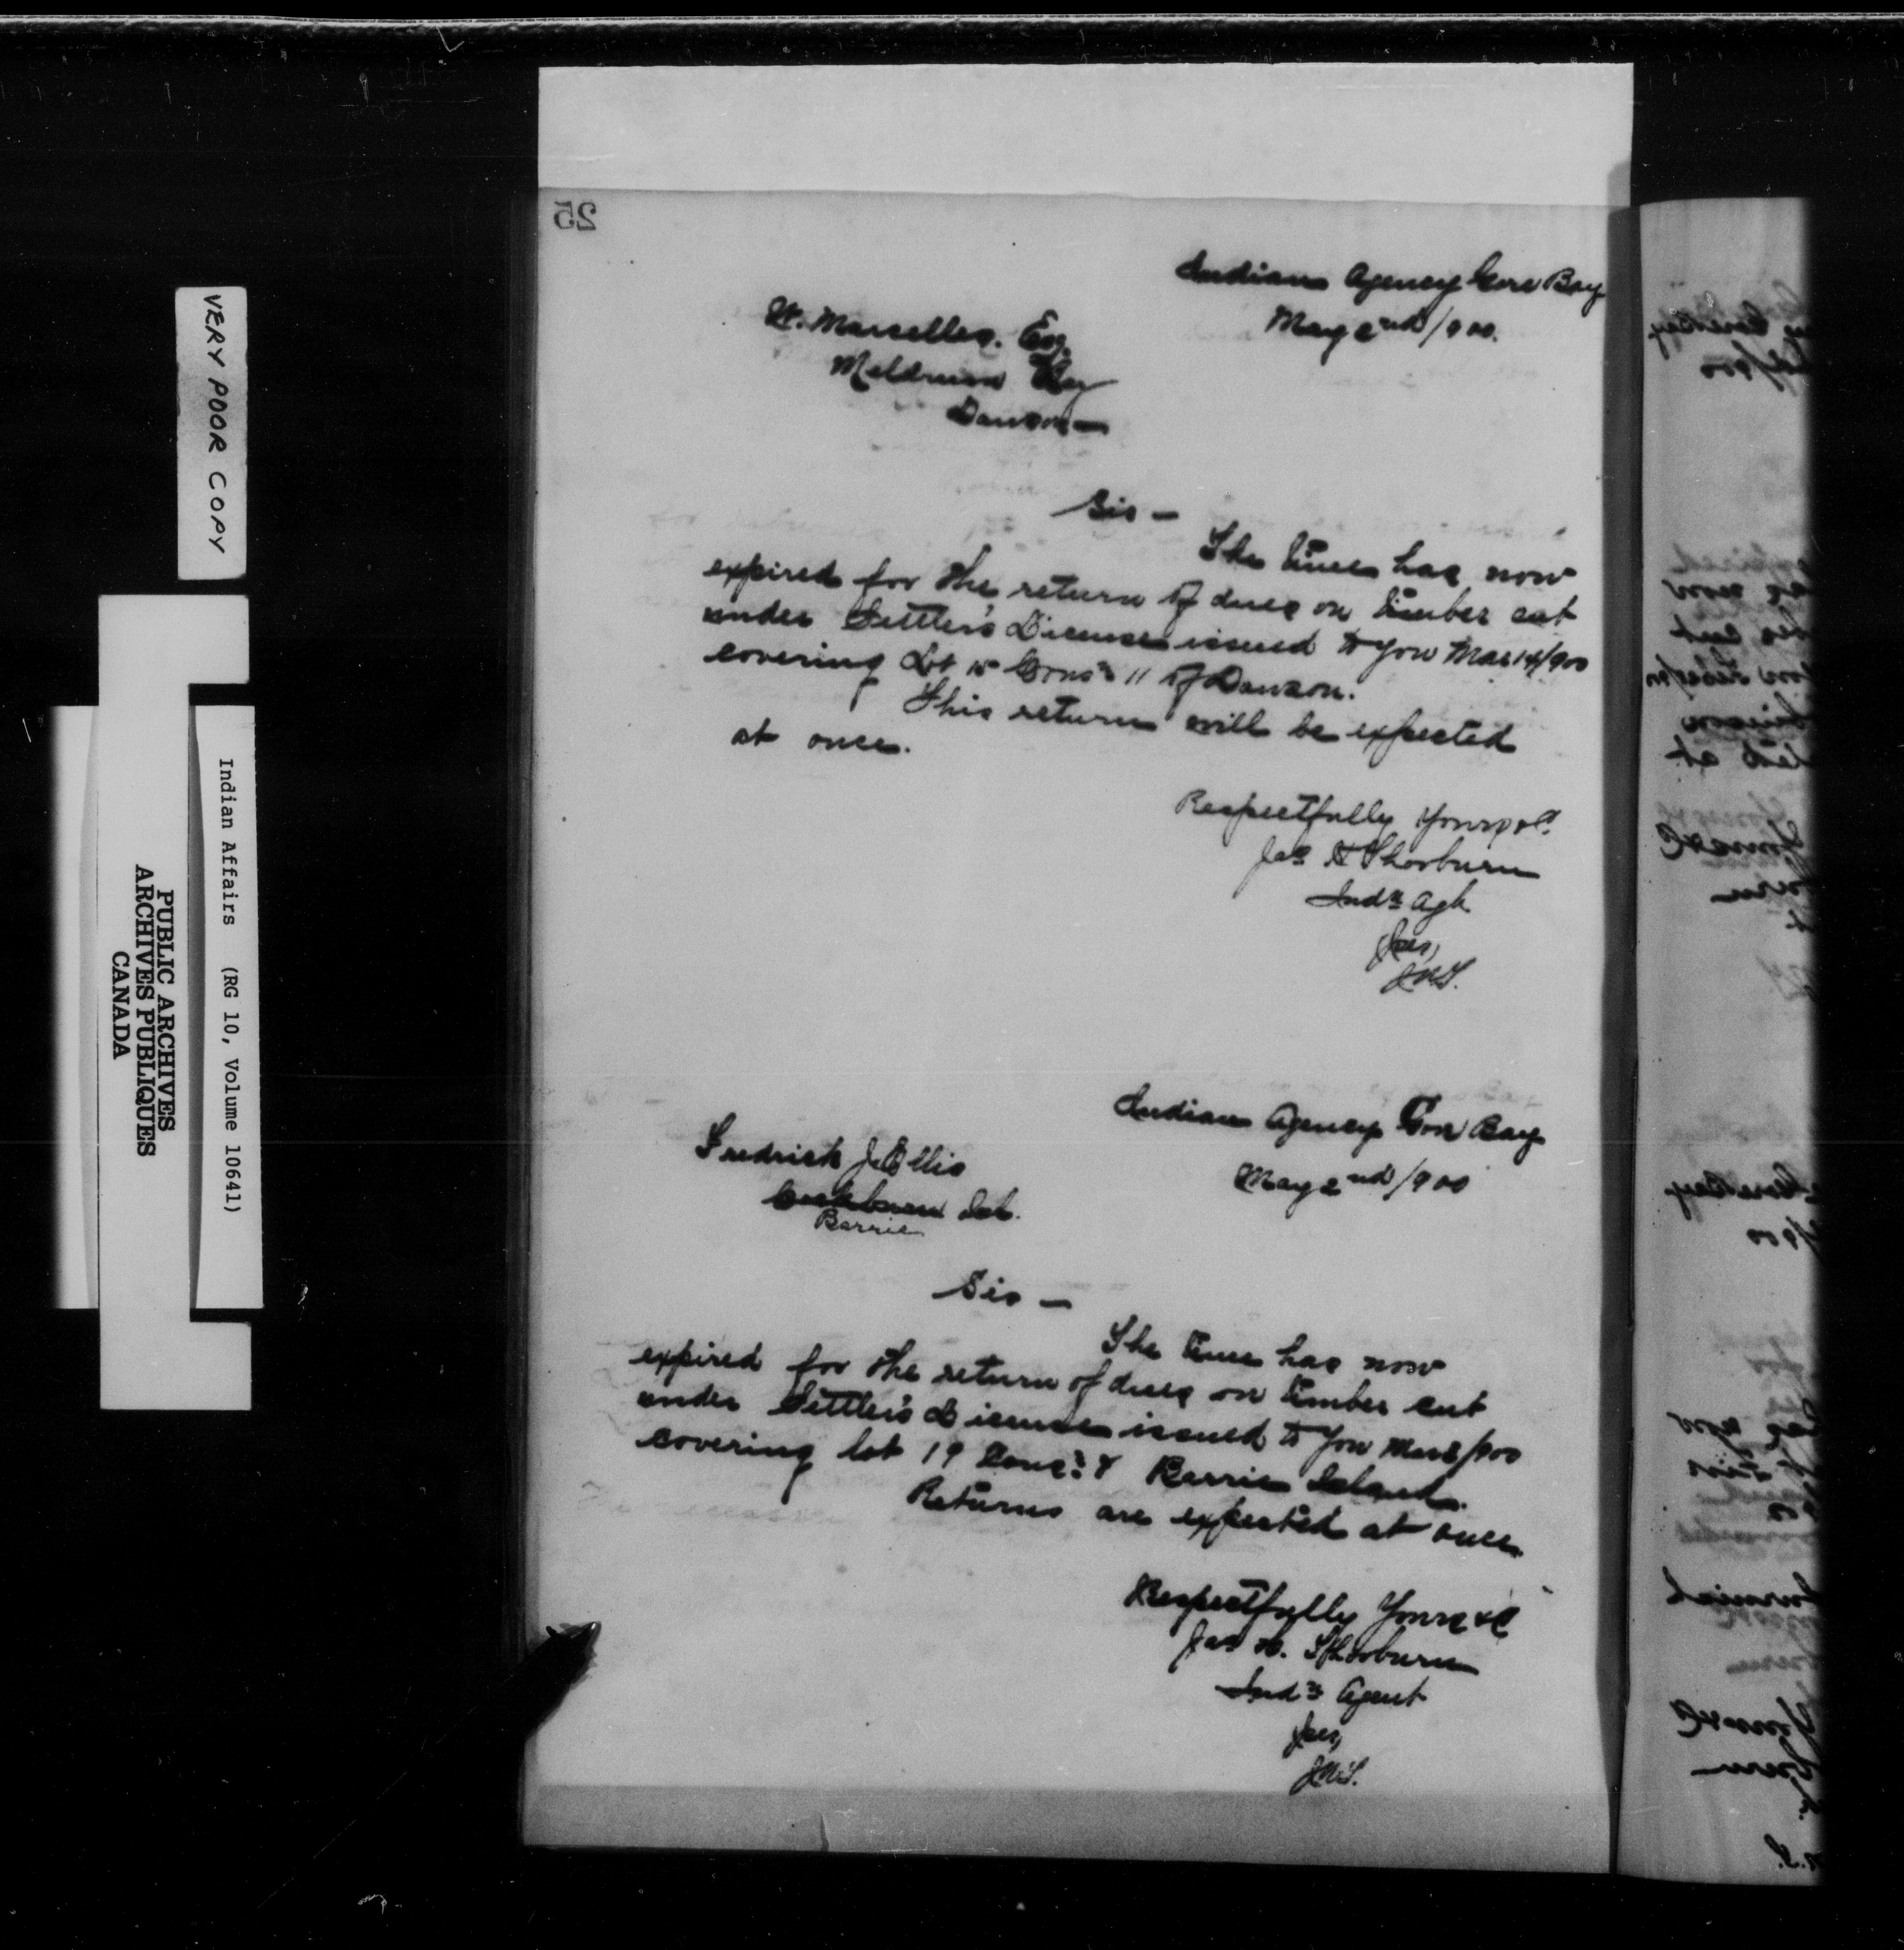 25
Indian Agency Gore Bay
May 2nd/900.
W. Marcellus. Esq.
Meldrum Bay
Dawson—
Sir —
The time has now
expired for the return of dues on timber cut
under Settler's License issued to you Mar 14/900
covering Lot 15 Con's 11 of Dawson.
This return will be expected
at once.
Respectfully Yours &c.
Jas H Thorburn
Indn Agt.
per,
Indian Agency Gore Bay
May 2nd/900
Fredrick J. Ellis
Cockburn Isl.
Barrie
Sir —
The time has now
expired for the return of dues on timber cut
under Settler's License issued to you Mar 8/900
covering lot 19 Barrie Island.
Returns are expected at once.
Respectfully Yours &c
Jas H. Thorburn
Indn Agent
per,
VERY POOR COPY
Indian Affairs (RG 10, Volume 10641)
PUBLIC ARCHIVES
ARCHIVES PUBLIQUES
CANADA